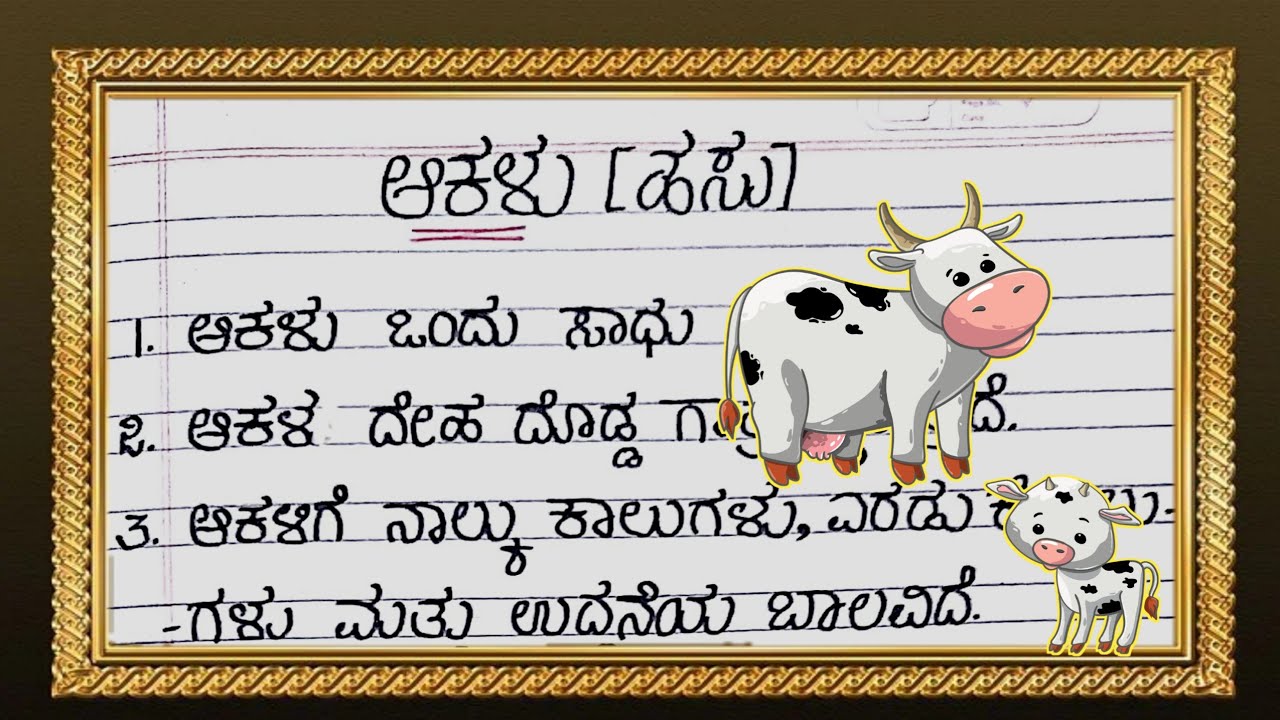 ಆಕಳು [ಹಸು]
1. ಆಕಳು ಒಂದು ಸಾಧು
2. ಆಕಳ ದೇಹ ದೊಡ್ಡ
3. ಆಕಳಿಗೆ ನಾಲ್ಕು ಕಾಲುಗಳು, ಎರಡು
-ಗಳು ಮತ್ತು ಉದ್ದನೆಯ ಬಾಲವಿದೆ.